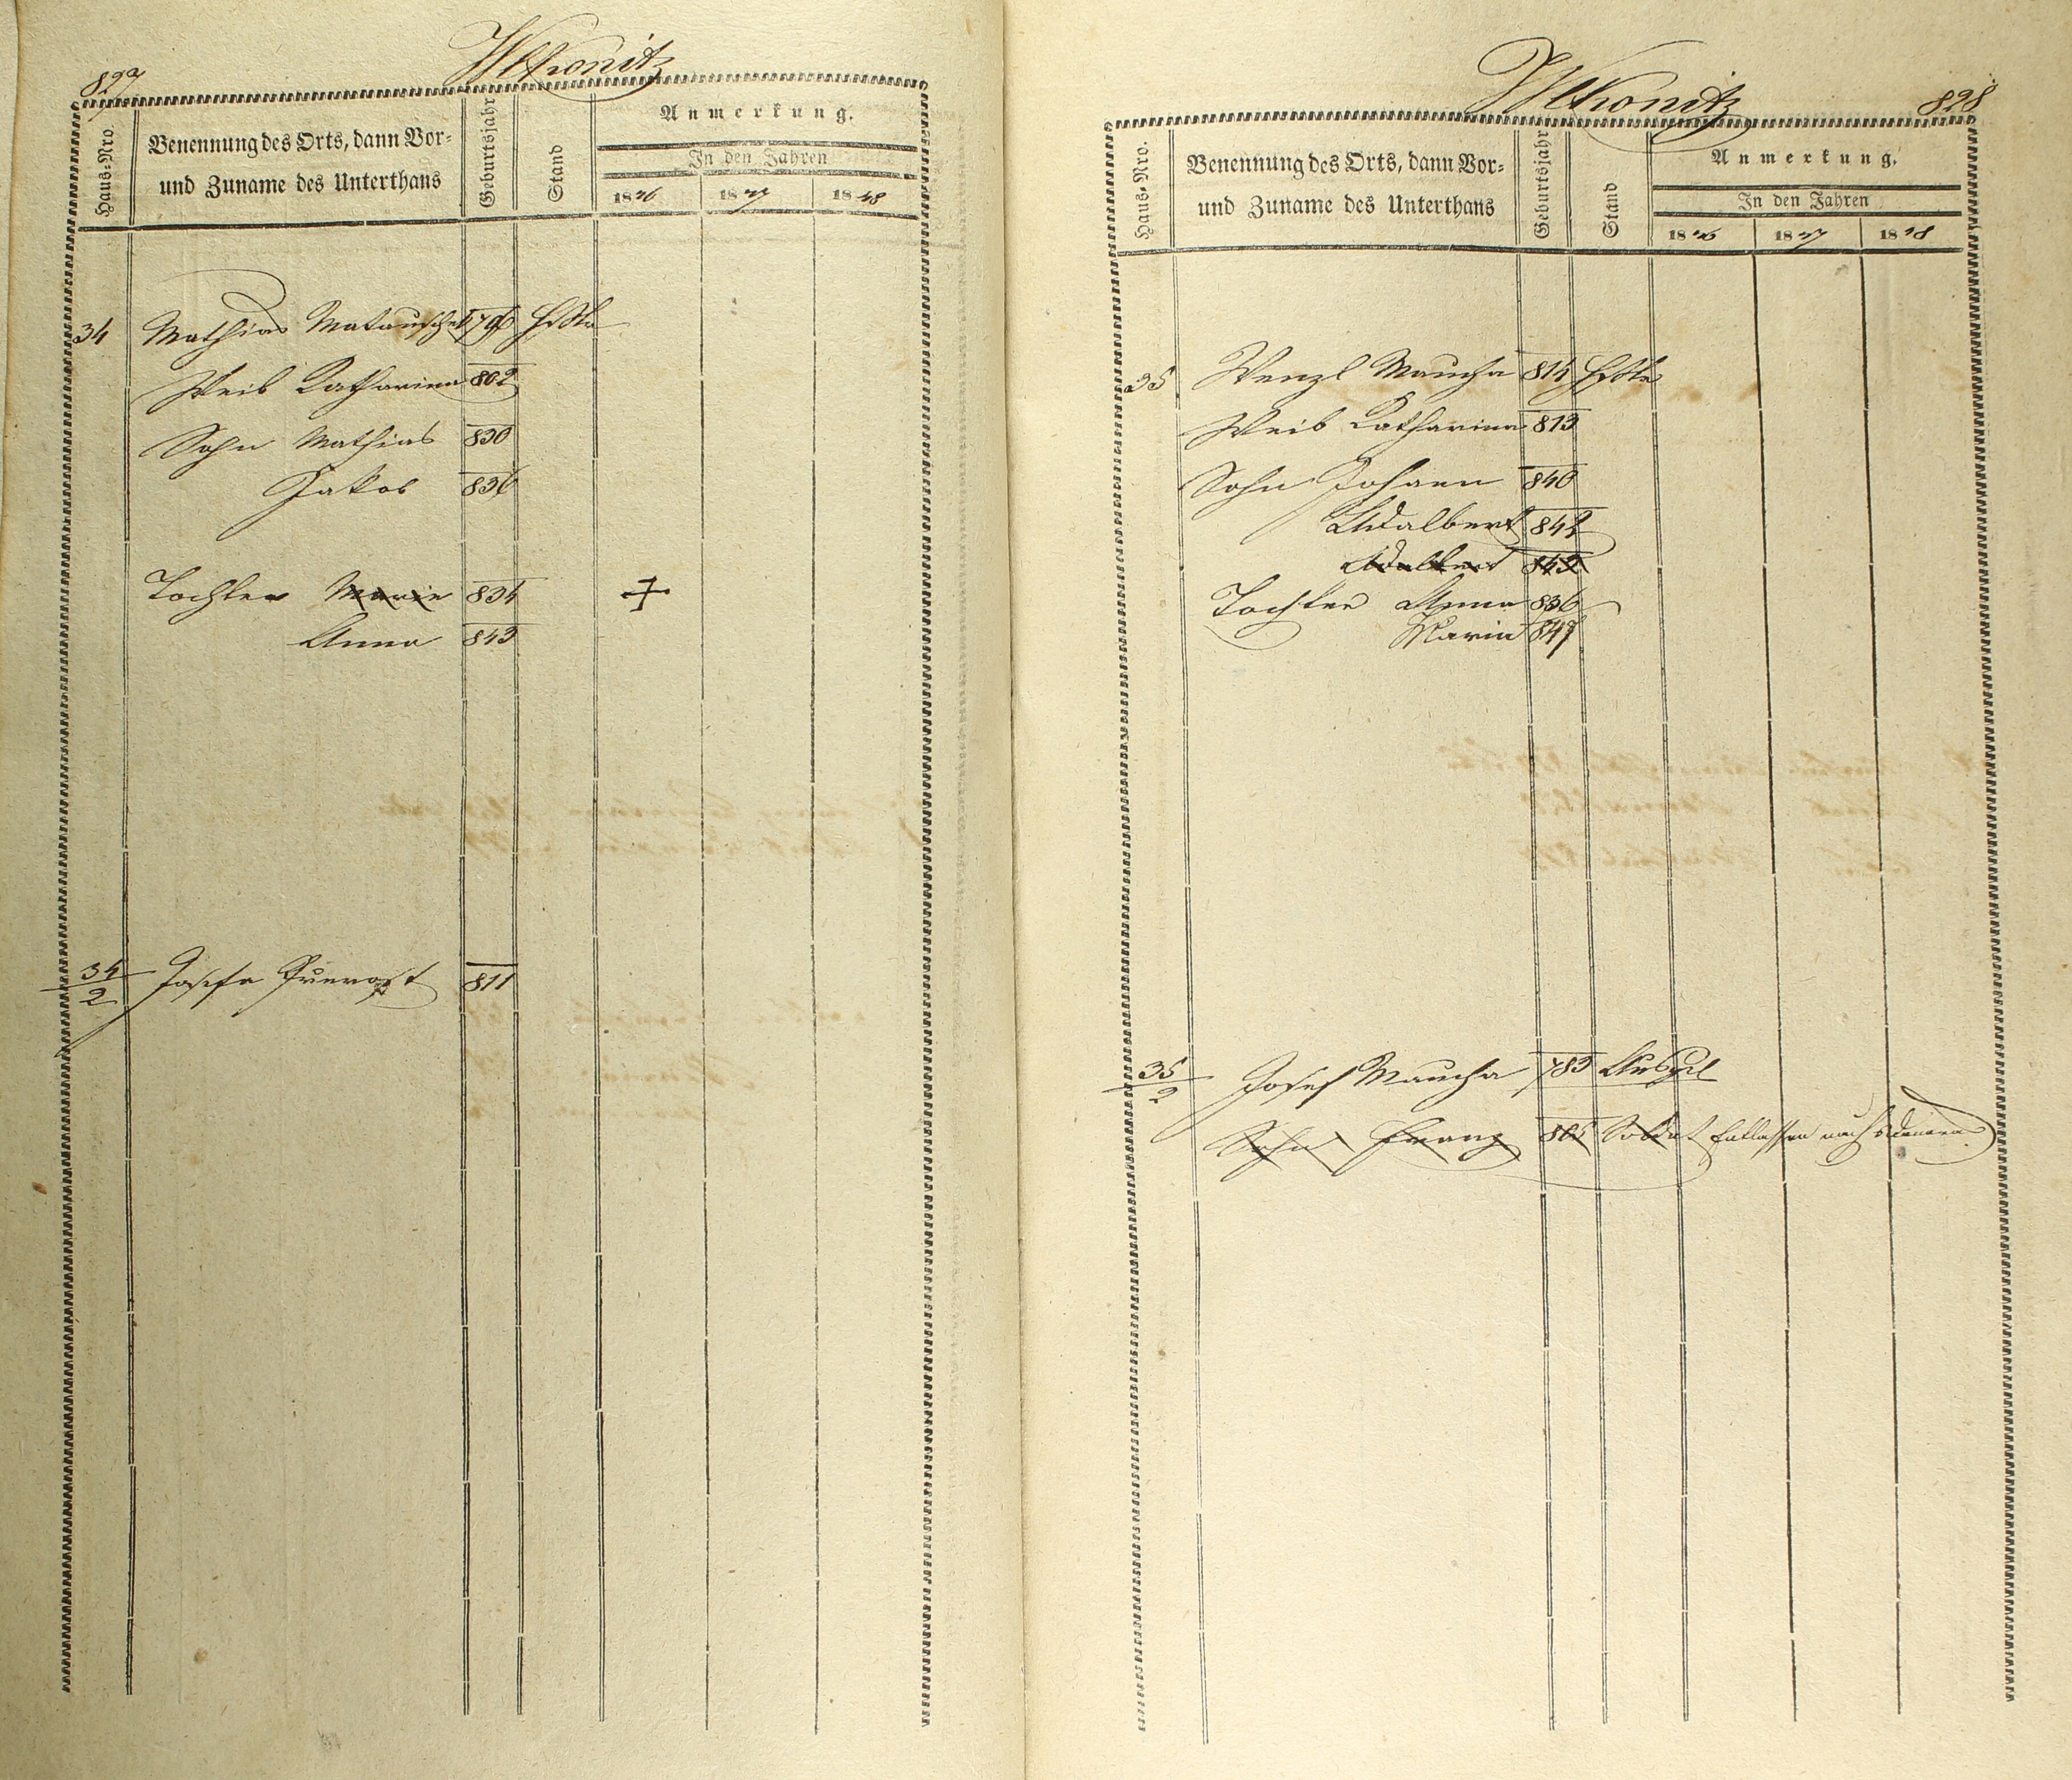 827
Wlkonitz
Haus-Nro.
Benennung des Orts, dann Vor-
und Zuname des Unterthans
Geburtsjahr
Stand
Anmerkung.
In den Jahren
1846 1847 1848
34 Mathias Matausch 796
Weib Katharina 802
Sohn Mathias 830
Jakob 836
Tochter Marie 834 +
Anna 843
34/2 Josefa 811
Wlkonitz
828
Haus-Nro.
Benennung des Orts, dann Vor-
und Zuname des Unterthans
Geburtsjahr
Stand
Anmerkung.
In den Jahren
1846 1847 1848
35 Wenzl Maucha 814
Weib Katharina 813
Sohn Johann 840
Adalbert 842
Adalbert 843
Tochter Anna 836
Maria 847
35/2 Josef Maucha 783
Sohn Franz 805 Soldat Entlassen nach